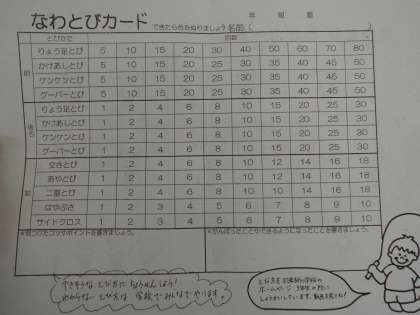 なわとびカード できたら色をぬりましょう 年 組 番 名前( )
とびかた 回数
前
りょう足とび 5 10 15 20 30 40 50 60 70 80
かけあしとび 5 10 15 20 25 30 35 40 45 50
ケンケンとび 5 10 15 20 25 30 35 40 45 50
グーパーとび 5 10 15 20 25 30 35 40 45 50
後ろ
りょう足とび 1 2 4 6 8 10 15 20 25 30
かけあしとび 1 2 4 6 8 10 15 20 25 30
ケンケンとび 1 2 4 6 8 10 15 20 25 30
グーパーとび 1 2 4 6 8 10 15 20 25 30
前
交さとび 1 2 4 6 8 10 12 14 16 18
あやとび 1 2 4 6 8 10 12 14 16 18
二重とび 1 2 4 6 8 10 10 14 16 18
はやぶさ 1 2 3 4 5 6 7 8 9 10
サイドクロス 1 2 3 4 5 6 7 8 9 10
*見つけたコツやポイントを書きましょう。
*がんばったことやできるようになったことを書きましょう。
できそうな とび方に ちょうせんしよう!
わからない とび方は 学校で みんなで やります。
とび方を
ホームページ
しょうかいしています。